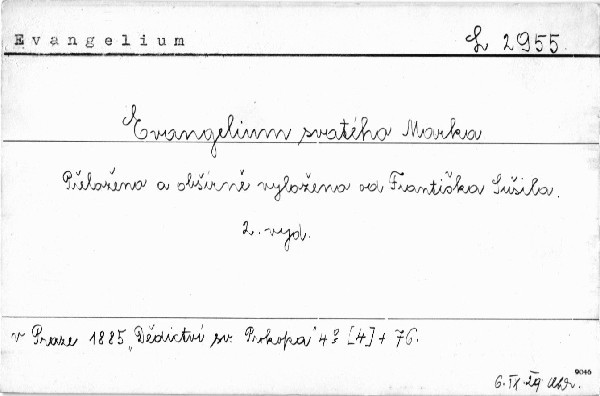 Evangelium L 2955.
Evangelium svatého Marka
Přeloženo a obšírně vyloženo od Františka Sušila.
2. vyd.
v Praze 1885 „Dědictví sv. Prokopa" 4º [4] + 76.
9046
6. IX. 29